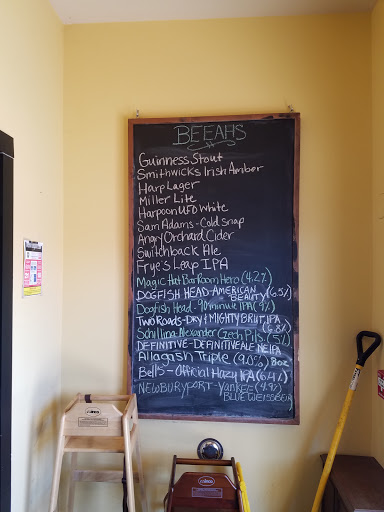 BEEAHS
Guinness Stout
Smithwicks Irish Amber
Harp Lager
Miller Lite
Harpoon UFO White
Sam Adams - Cold Snap
Angry Orchard Cider
Switchback Ale
Frye's Leap IPA
Magic Hat Bar Room Hero (4.2%)
DOGFISH HEAD-AMERICAN BEAUTY (6.5%)
Dogfish Head - 90 minute IPA (9%)
TWO ROADS-DRY & MIGHTY BRUT IPA (6.8%)
Schilling-Alexander Czech Pils. (5%)
DEFINITIVE-DEFINITIVE ALE NE IPA
Allagash Triple (9.0%) 8oz
Bell's - Official Hazy IPA (6.4%)
NEWBURYPORT-YANKEE (4.9%)
BLUE WEISSBEIR